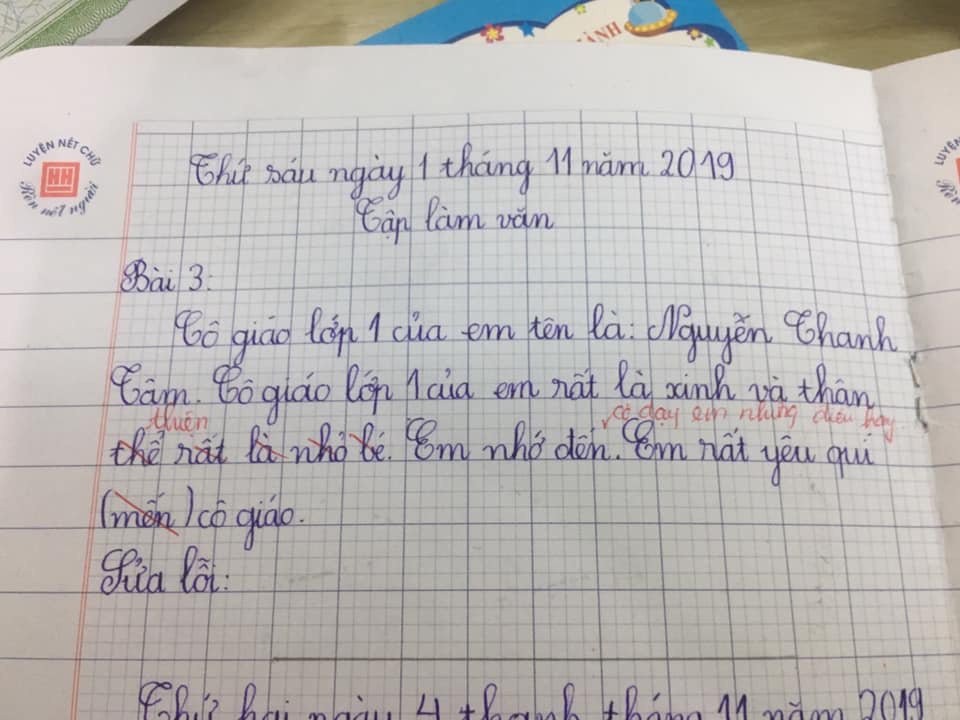 ÀNH
LUYỆN NÉT CHỮ
HH
Rèn nết người
Thứ sáu ngày 1 tháng 11 năm 2019
Tập làm văn
Bài 3:
Cô giáo lớp 1 của em tên là: Nguyễn Thanh
Tâm. Cô giáo lớp 1 của em rất là xinh và thân
thiện
cô dạy em những điều hay
thể rất là nhỏ bé. Em nhớ đến. Em rất yêu quí
(mến) cô giáo.
Sửa lỗi:
Thứ hai ngày 4 thanh tháng 11 năm 2019